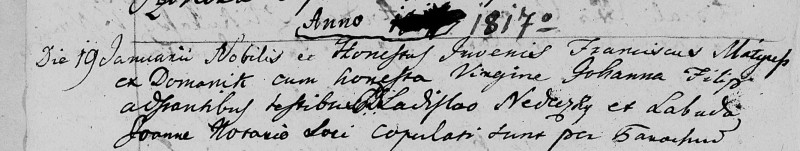 Anno 1817º
Die 19 Januarii Nobilis et Honestus Juvenis Franciscus Matyas
ex Domanik cum honesta Virgine Johanna Filip
adstantibus testibus Ladislao Nedeczky et Labuda
Joanne Notario Loci copulati sunt per Parochum